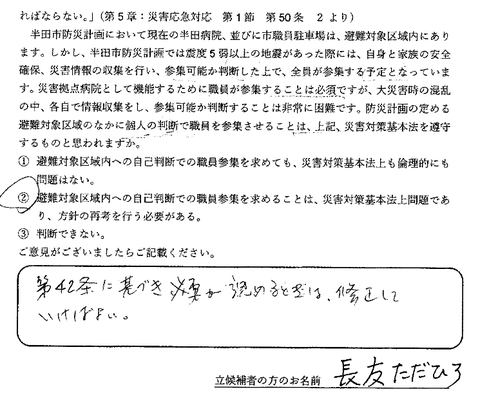 ればならない。」(第5章：災害応急対応　第1節　第50条　2より)
半田市防災計画において現在の半田病院、並びに市職員駐車場は、避難対象区域内にあり
ます。しかし、半田市防災計画では震度5弱以上の地震があった際には、自身と家族の安全
確保、災害情報の収集を行い、参集可能か判断した上で、全員が参集する予定となっていま
す。災害拠点病院として機能するために職員が参集することは必須ですが、大災害時の混乱
の中、各自で情報収集をし、参集可能か判断することは非常に困難です。防災計画の定める
避難対象区域のなかに個人の判断で職員を参集させることは、上記、災害対策基本法を遵守
するものと思われますか。
① 避難対象区域内への自己判断での職員参集を求めても、災害対策基本法上も倫理的にも
問題はない。
② 避難対象区域内への自己判断での職員参集を求めることは、災害対策基本法上問題であ
り、方針の再考を行う必要がある。
③ 判断できない。
ご意見がございましたらご記載ください。
第42条に基づき必要が認めるときは、修正して
いけばよい。
立候補者の方のお名前　長友ただひろ